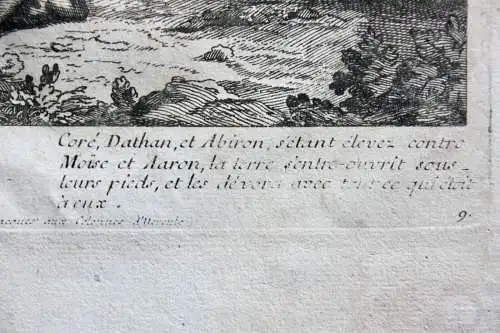 Coré, Dathan, et Abiron, s'étant élevez contre
Moïse et Aaron, la terre s'entre-ouvrit sous
leurs pieds, et les dévora avec tout ce qui étoit
à eux.
aux Colonnes d'Hercule
9.